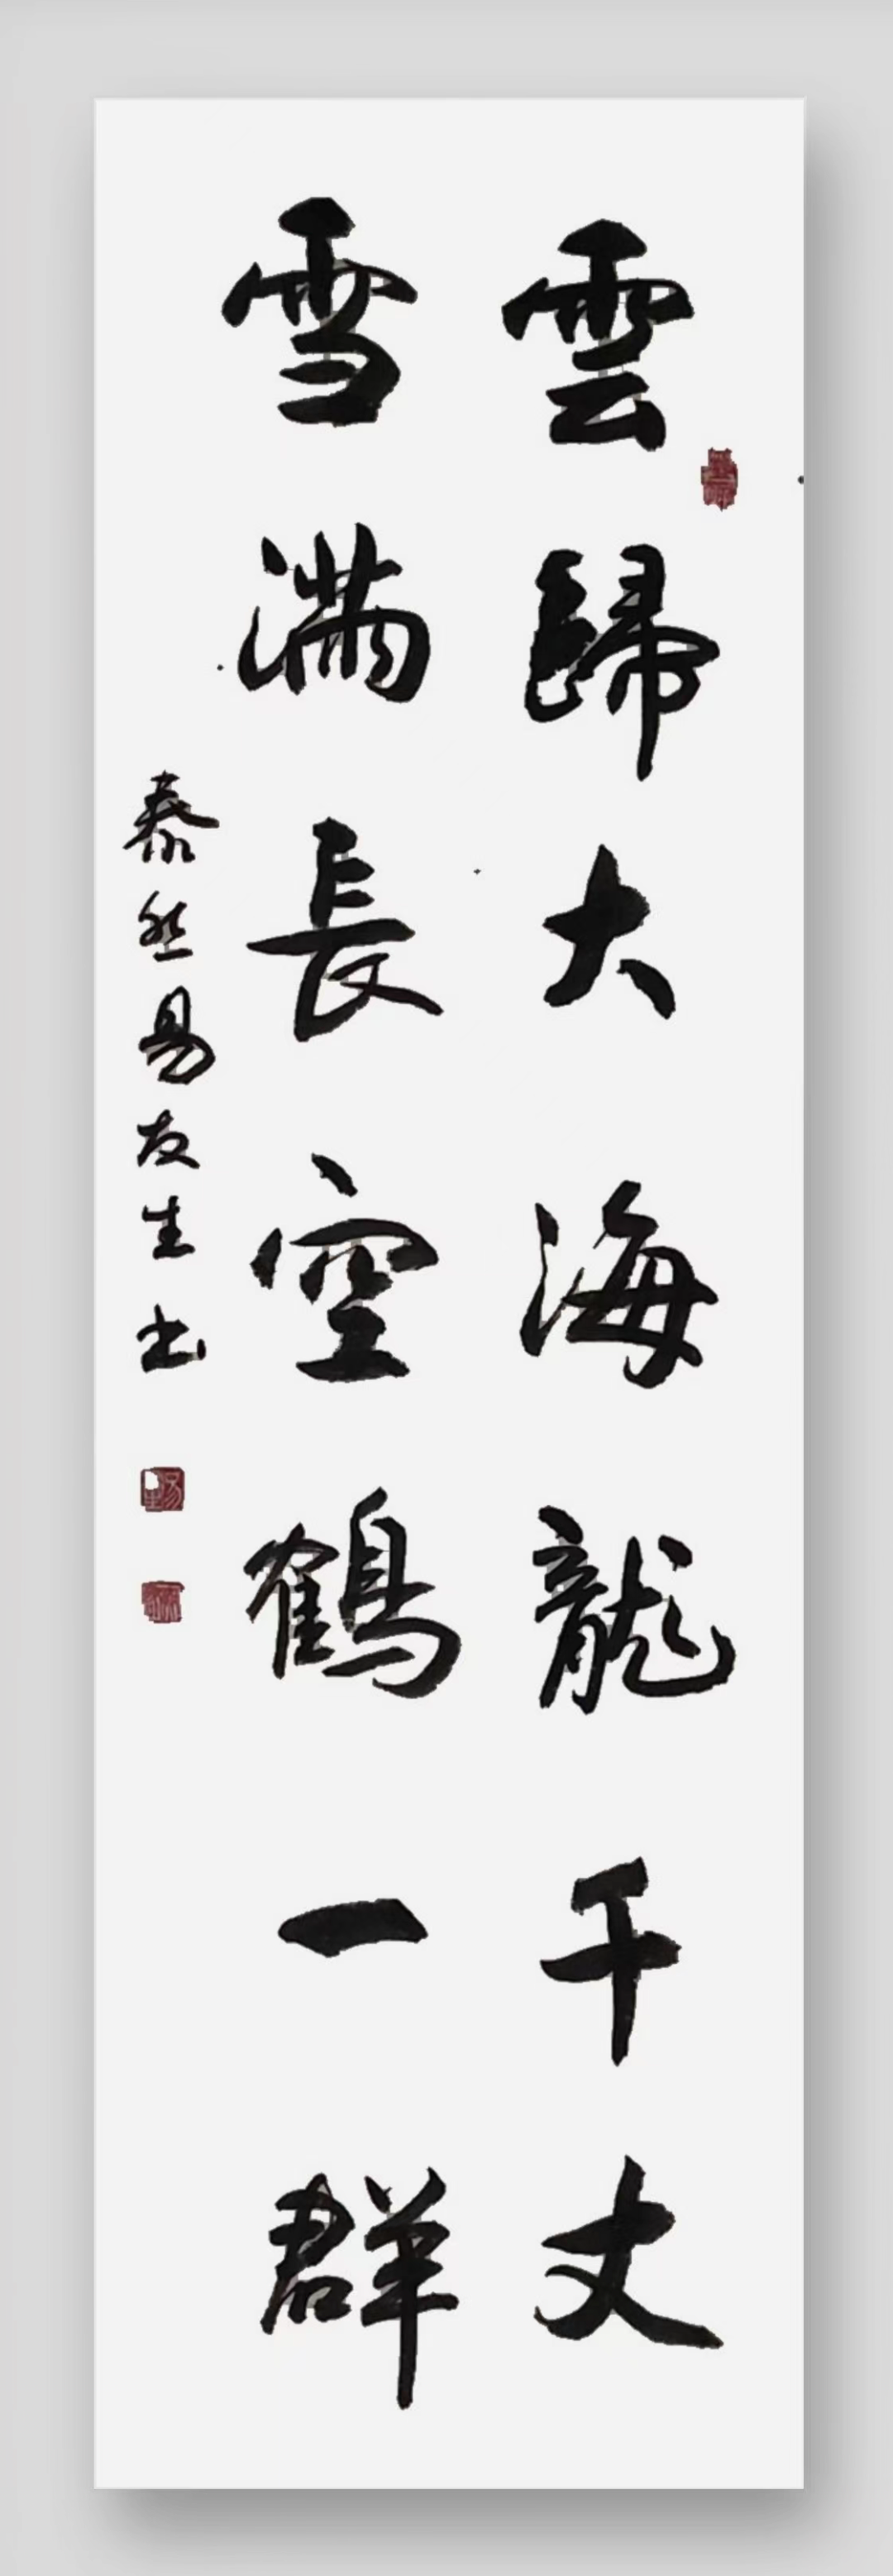 雲歸大海龍千丈
雪满長空鶴一群
泰然易友生书